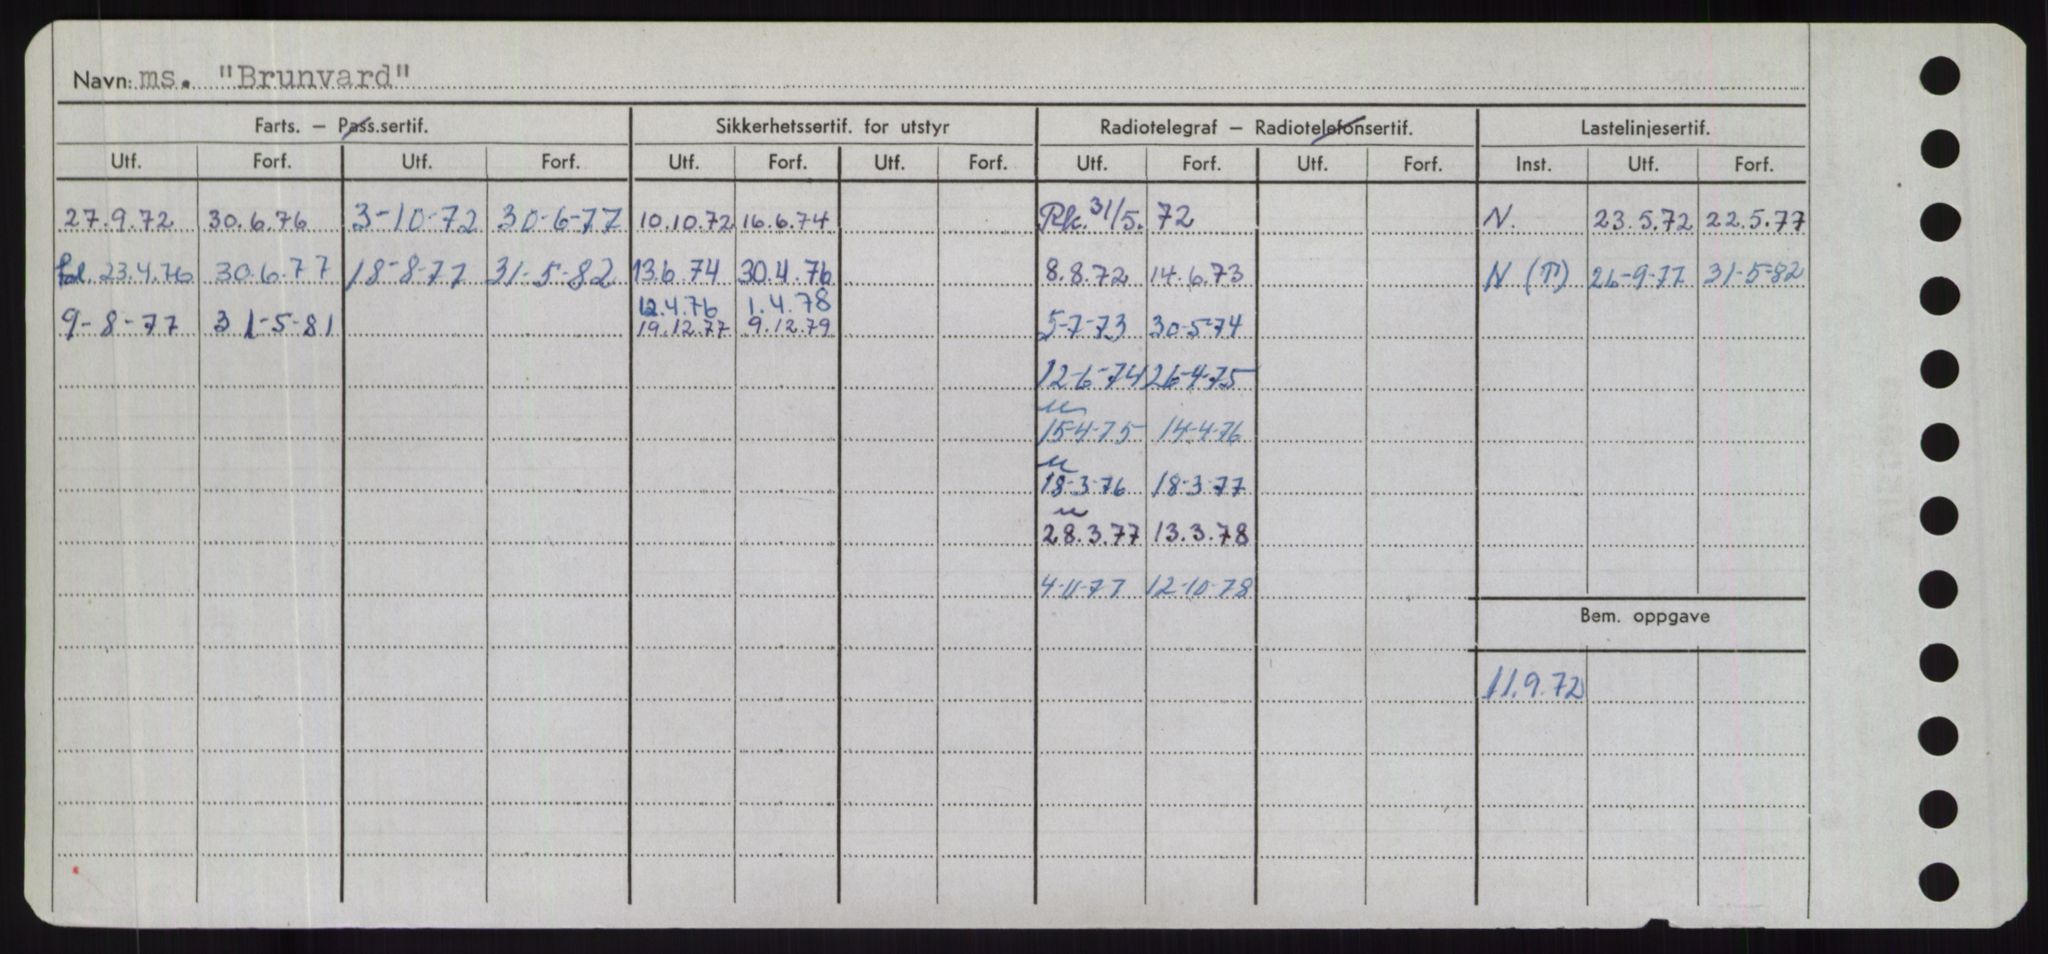 Navn: ms. "Brunvard"
Farts. – Pass.sertif. Sikkerhetssertif. for utstyr Radiotelegraf – Radiotelefonsertif. Lastelinjesertif.
Utf. Forf. Utf. Forf. Utf. Forf. Utf. Forf. Utf. Forf. Utf. Forf. Inst. Utf. Forf.
27.9.72 30.6.76 3-10-72 30-6-77 10.10.72 16.6.74 31/5. 72 N. 23.5.72 22.5.77
23.4.76 30.6.77 18-8-77 31-5-82 13.6.74 30.4.76 8.8.72 14.6.73 N (T) 26-9-77 31-5-82
12.4.76 1.4.78
9-8-77 31-5-81 19.12.77 9.12.79 5-7-73 30-5-74
12-6-74 26-4-75
15-4-75 14-4-76
18-3-76 18-3-77
28.3.77 13.3.78
4-11-77 12-10-78
Bem. oppgave
11.9.72